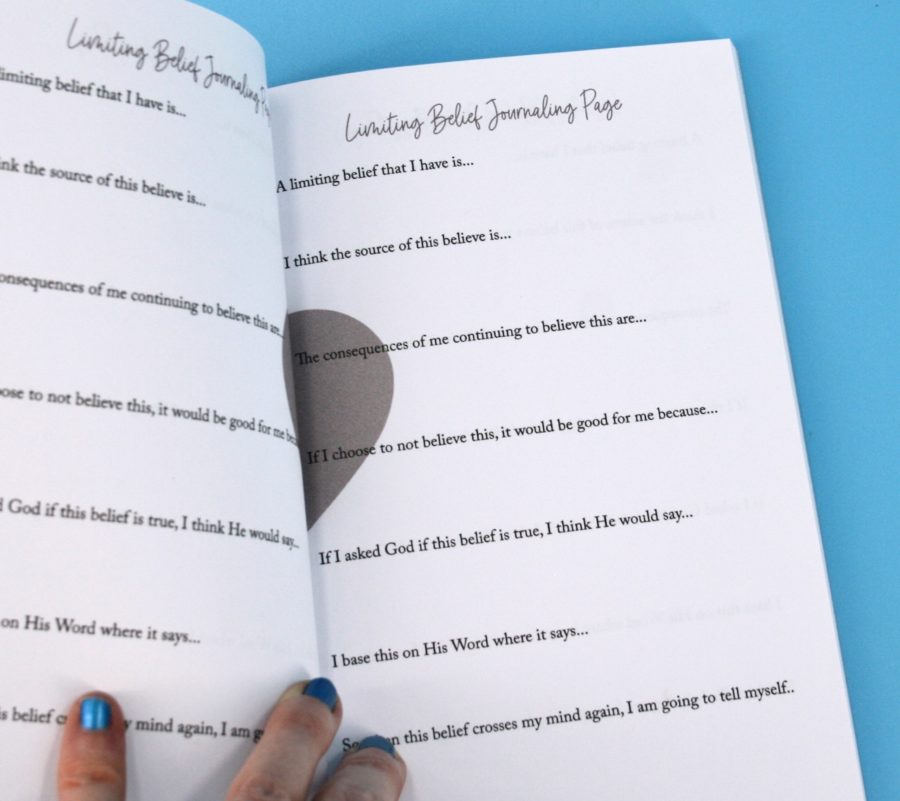 Limiting Belief Journaling
limiting belief that I have is...
the source of this believe is...
consequences of me continuing to believe this are...
to not believe this, it would be good for me
God if this belief is true, I think He would say...
on His Word where it says...
belief
mind again, I am
Limiting Belief Journaling Page
A limiting belief that I have is...
I think the source of this believe is...
The consequences of me continuing to believe this are...
If I choose to not believe this, it would be good for me because...
If I asked God if this belief is true, I think He would say...
I base this on His Word where it says...
this belief crosses my mind again, I am going to tell myself..